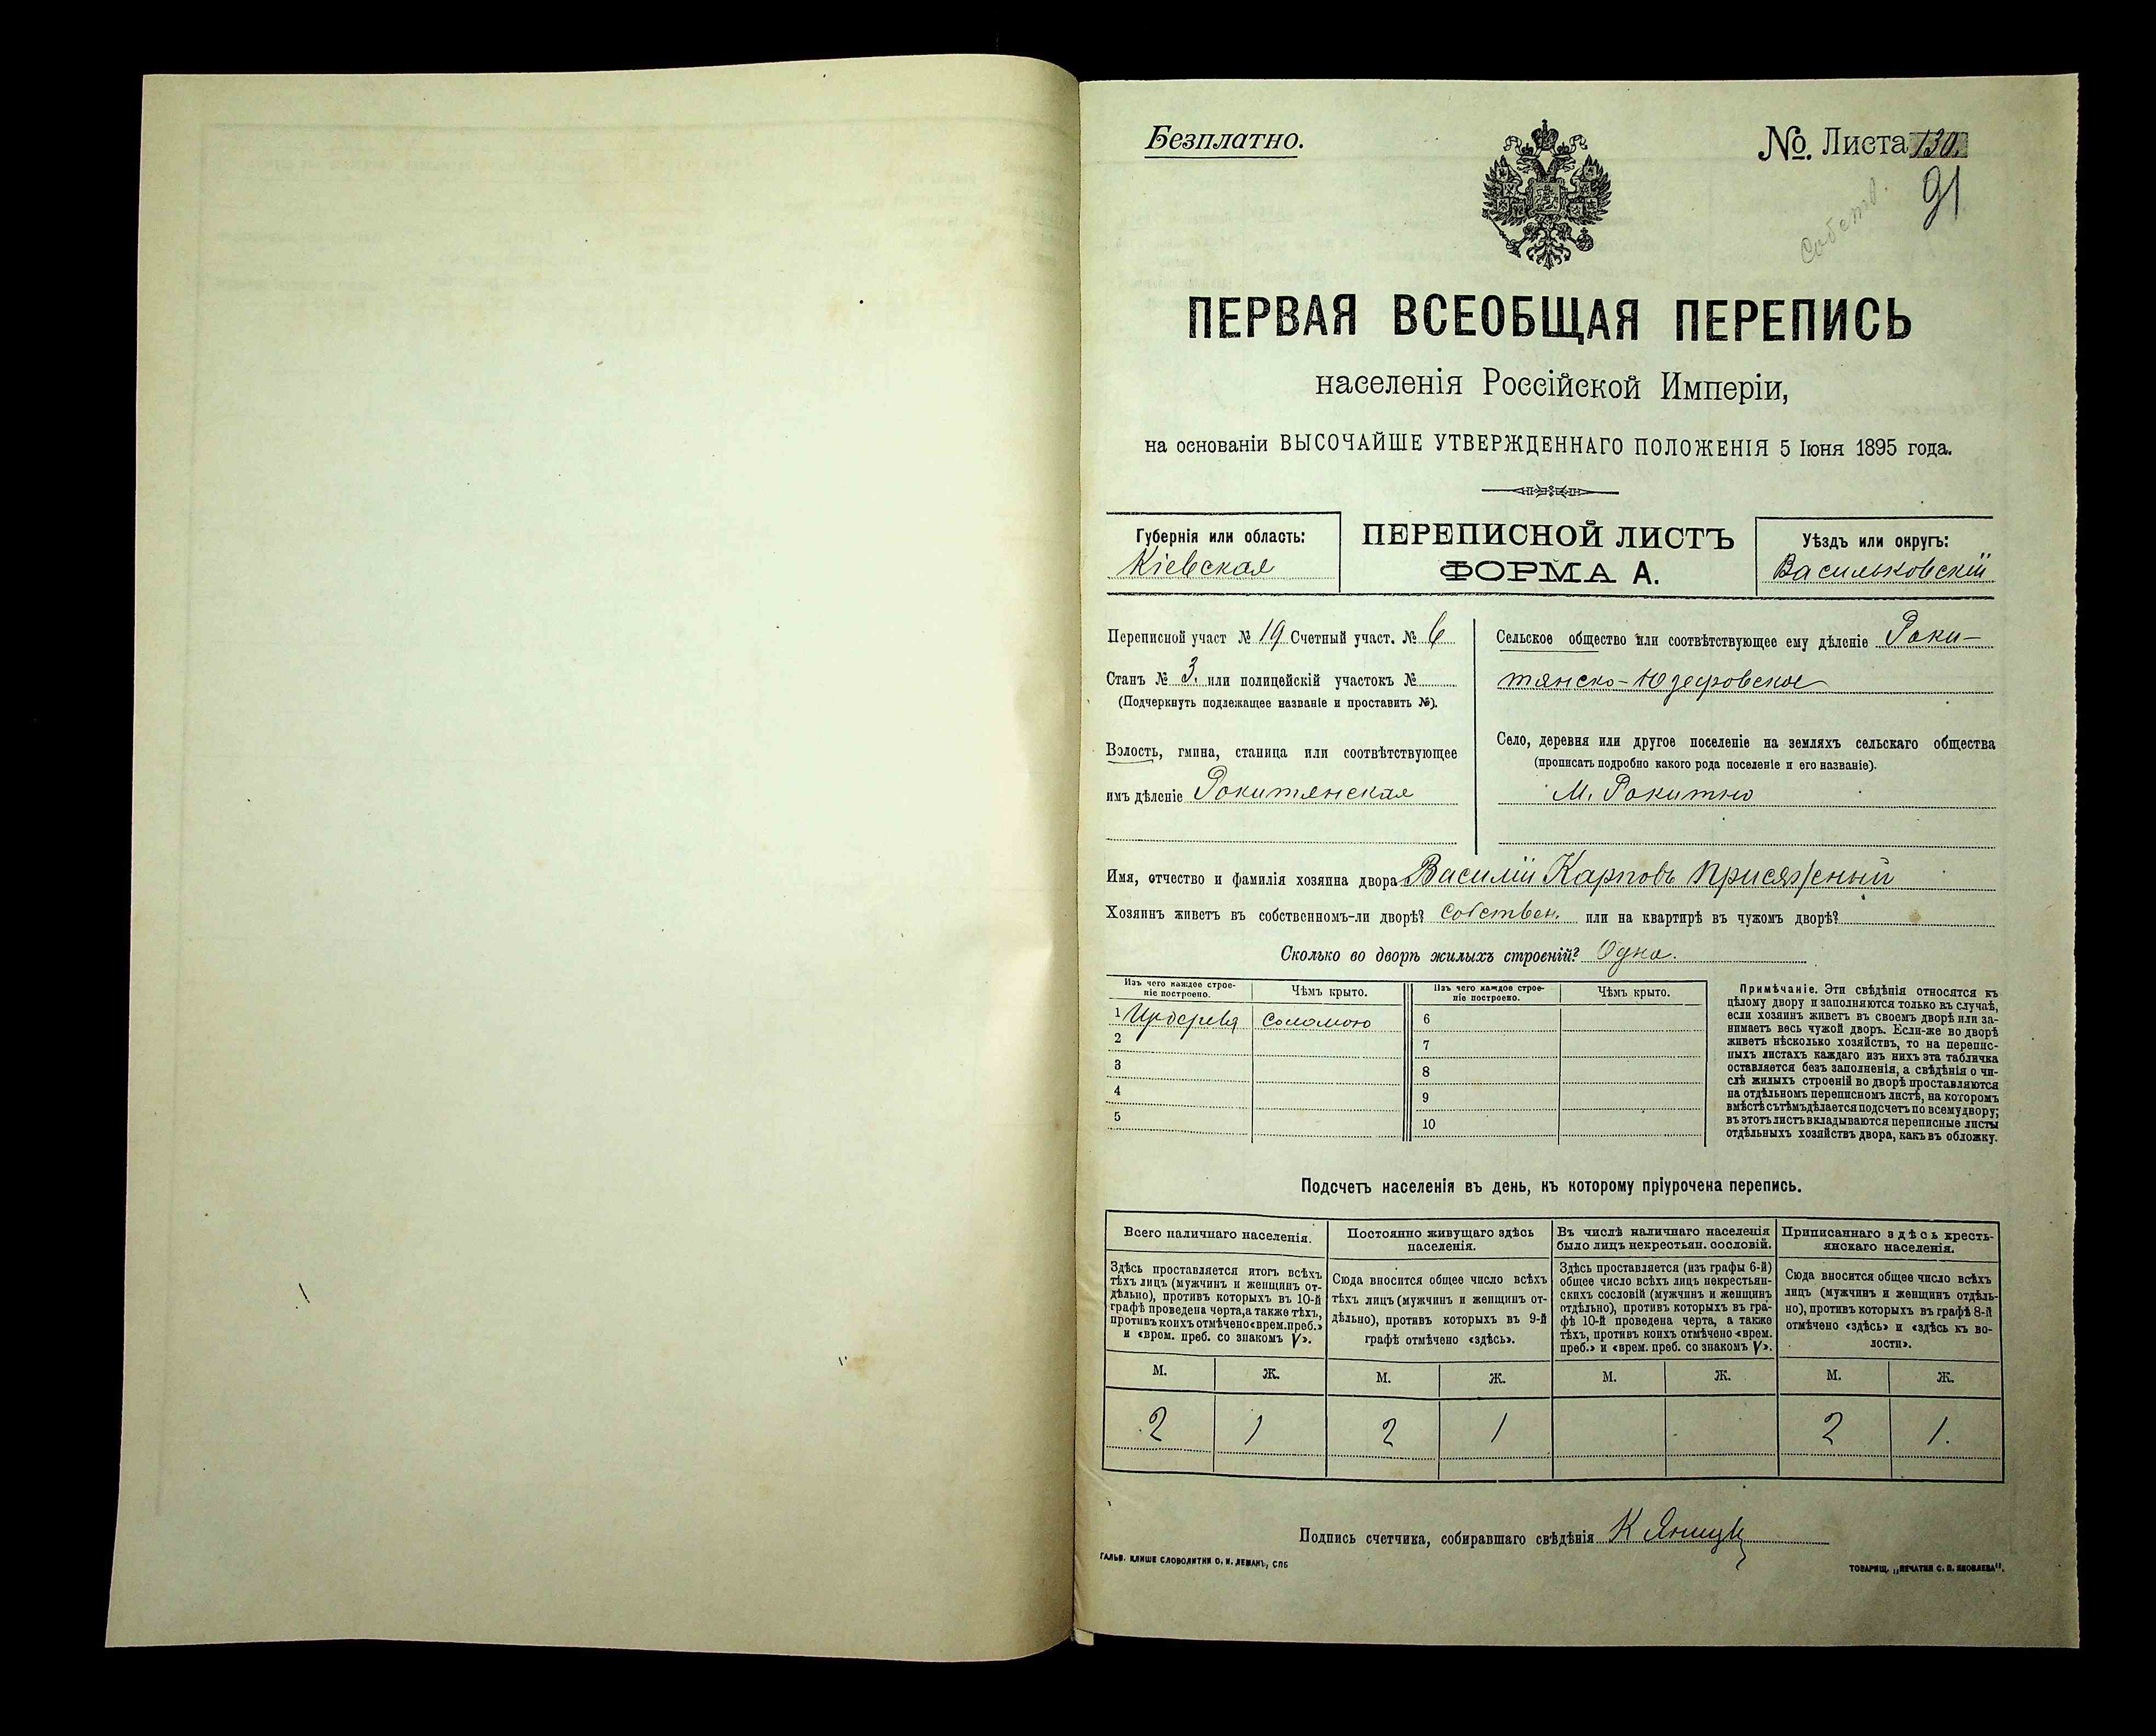 Безплатно.
№. Листа 130.
91
Собств.
ПЕРВАЯ ВСЕОБЩАЯ ПЕРЕПИСЬ
населенія Россійской Имперіи,
на основаніи ВЫСОЧАЙШЕ УТВЕРЖДЕННАГО ПОЛОЖЕНІЯ 5 Іюня 1895 года.
Губернія или область:
Кіевская
ПЕРЕПИСНОЙ ЛИСТЪ
ФОРМА А.
Уѣздъ или округъ:
Васильковскій
Переписной участ № 19 Счетный участ. № 6
Станъ № 3. или полицейскій участокъ №
(Подчеркнуть подлежащее названіе и проставить №).
Волость, гмина, станица или соотвѣтствующее
имъ дѣленіе Рокитянская
Сельское общество или соотвѣтствующее ему дѣленіе Роки-
тянско-Юзефовское
Село, деревня или другое поселеніе на земляхъ сельскаго общества
(прописать подробно какого рода поселеніе и его названіе).
М. Рокитно
Имя, отчество и фамилія хозяина двора Василій Карповъ Присяжный
Хозяинъ живетъ въ собственномъ-ли дворѣ? Собствен. или на квартирѣ въ чужомъ дворѣ?
Сколько во дворѣ жилыхъ строеній? Одна.
Изъ чего каждое строе-
ніе построено.
Чѣмъ крыто.
Изъ чего каждое строе-
ніе построено.
Чѣмъ крыто.
1 Соломою 6
2 7
3 8
4 9
5 10
Примѣчаніе. Эти свѣдѣнія относятся къ
цѣлому двору и заполняются только въ случаѣ,
если хозяинъ живетъ въ своемъ дворѣ или за-
нимаетъ весь чужой дворъ. Если-же во дворѣ
живетъ нѣсколько хозяйствъ, то на перепис-
ныхъ листахъ каждаго изъ нихъ эта табличка
оставляется безъ заполненія, а свѣдѣнія о чи-
слѣ жилыхъ строеній во дворѣ проставляются
на отдѣльномъ переписномъ листѣ, на которомъ
вмѣстѣ съ тѣмъ дѣлается подсчетъ по всему двору;
въ этотъ листъ вкладываются переписные листы
отдѣльныхъ хозяйствъ двора, какъ въ обложку.
Подсчетъ населенія въ день, къ которому пріурочена перепись.
Всего наличнаго населенія.
Здѣсь проставляется итогъ всѣхъ
тѣхъ лицъ (мужчинъ и женщинъ от-
дѣльно), противъ которыхъ въ 10-й
графѣ проведена черта, а также тѣхъ,
противъ коихъ отмѣчено «врем. преб.»
и «врем. преб. со знакомъ V».
Постоянно живущаго здѣсь
населенія.
Сюда вносится общее число всѣхъ
тѣхъ лицъ (мужчинъ и женщинъ от-
дѣльно), противъ которыхъ въ 9-й
графѣ отмѣчено «здѣсь».
Въ числѣ наличнаго населенія
было лицъ некрестьян. сословій.
Здѣсь проставляется (изъ графы 6-й)
общее число всѣхъ лицъ некрестьян-
скихъ сословій (мужчинъ и женщинъ
отдѣльно), противъ которыхъ въ гра-
фѣ 10-й проведена черта, а также
тѣхъ, противъ коихъ отмѣчено «врем.
преб.» и «врем. преб. со знакомъ V».
Приписаннаго здѣсь кресть-
янскаго населенія.
Сюда вносится общее число всѣхъ
лицъ (мужчинъ и женщинъ отдѣль-
но), противъ которыхъ въ графѣ 8-й
отмѣчено «здѣсь» и «здѣсь къ во-
лости».
М. Ж. М. Ж. М. Ж. М. Ж.
2 1 2 1 2 1.
Подпись счетчика, собиравшаго свѣдѣнія К
ГАЛЬВ. КЛИШЕ СЛОВОЛИТНИ О. И. ЛЕМАНЪ, СПБ
ТОВАРИЩ. „ПЕЧАТНИ С. П. ЯКОВЛЕВА".